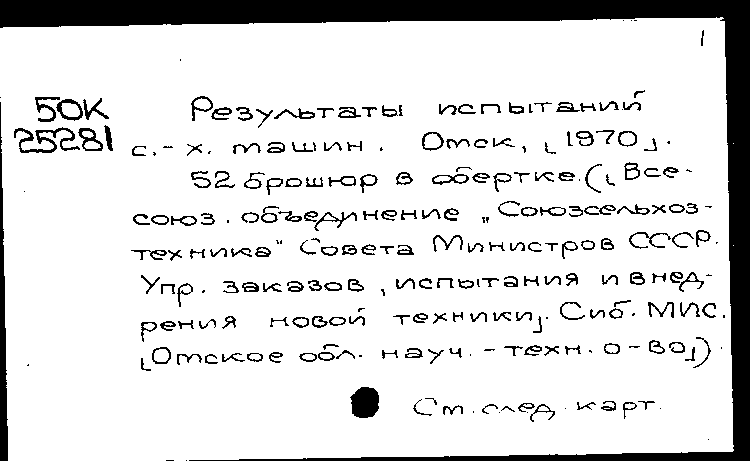 1
50К Результаты испытаний
25281 с.-х. машин. Омск, [1970].
52 брошюр в обертке. ([Все-
союз. объединение „Союзсельхоз-
техника" Совета Министров СССР.
Упр. заказов, испытания и внед-
рения новой техники]. Сиб. МИС.
[Омское обл. науч.-техн. о-во]).
См. след. карт.